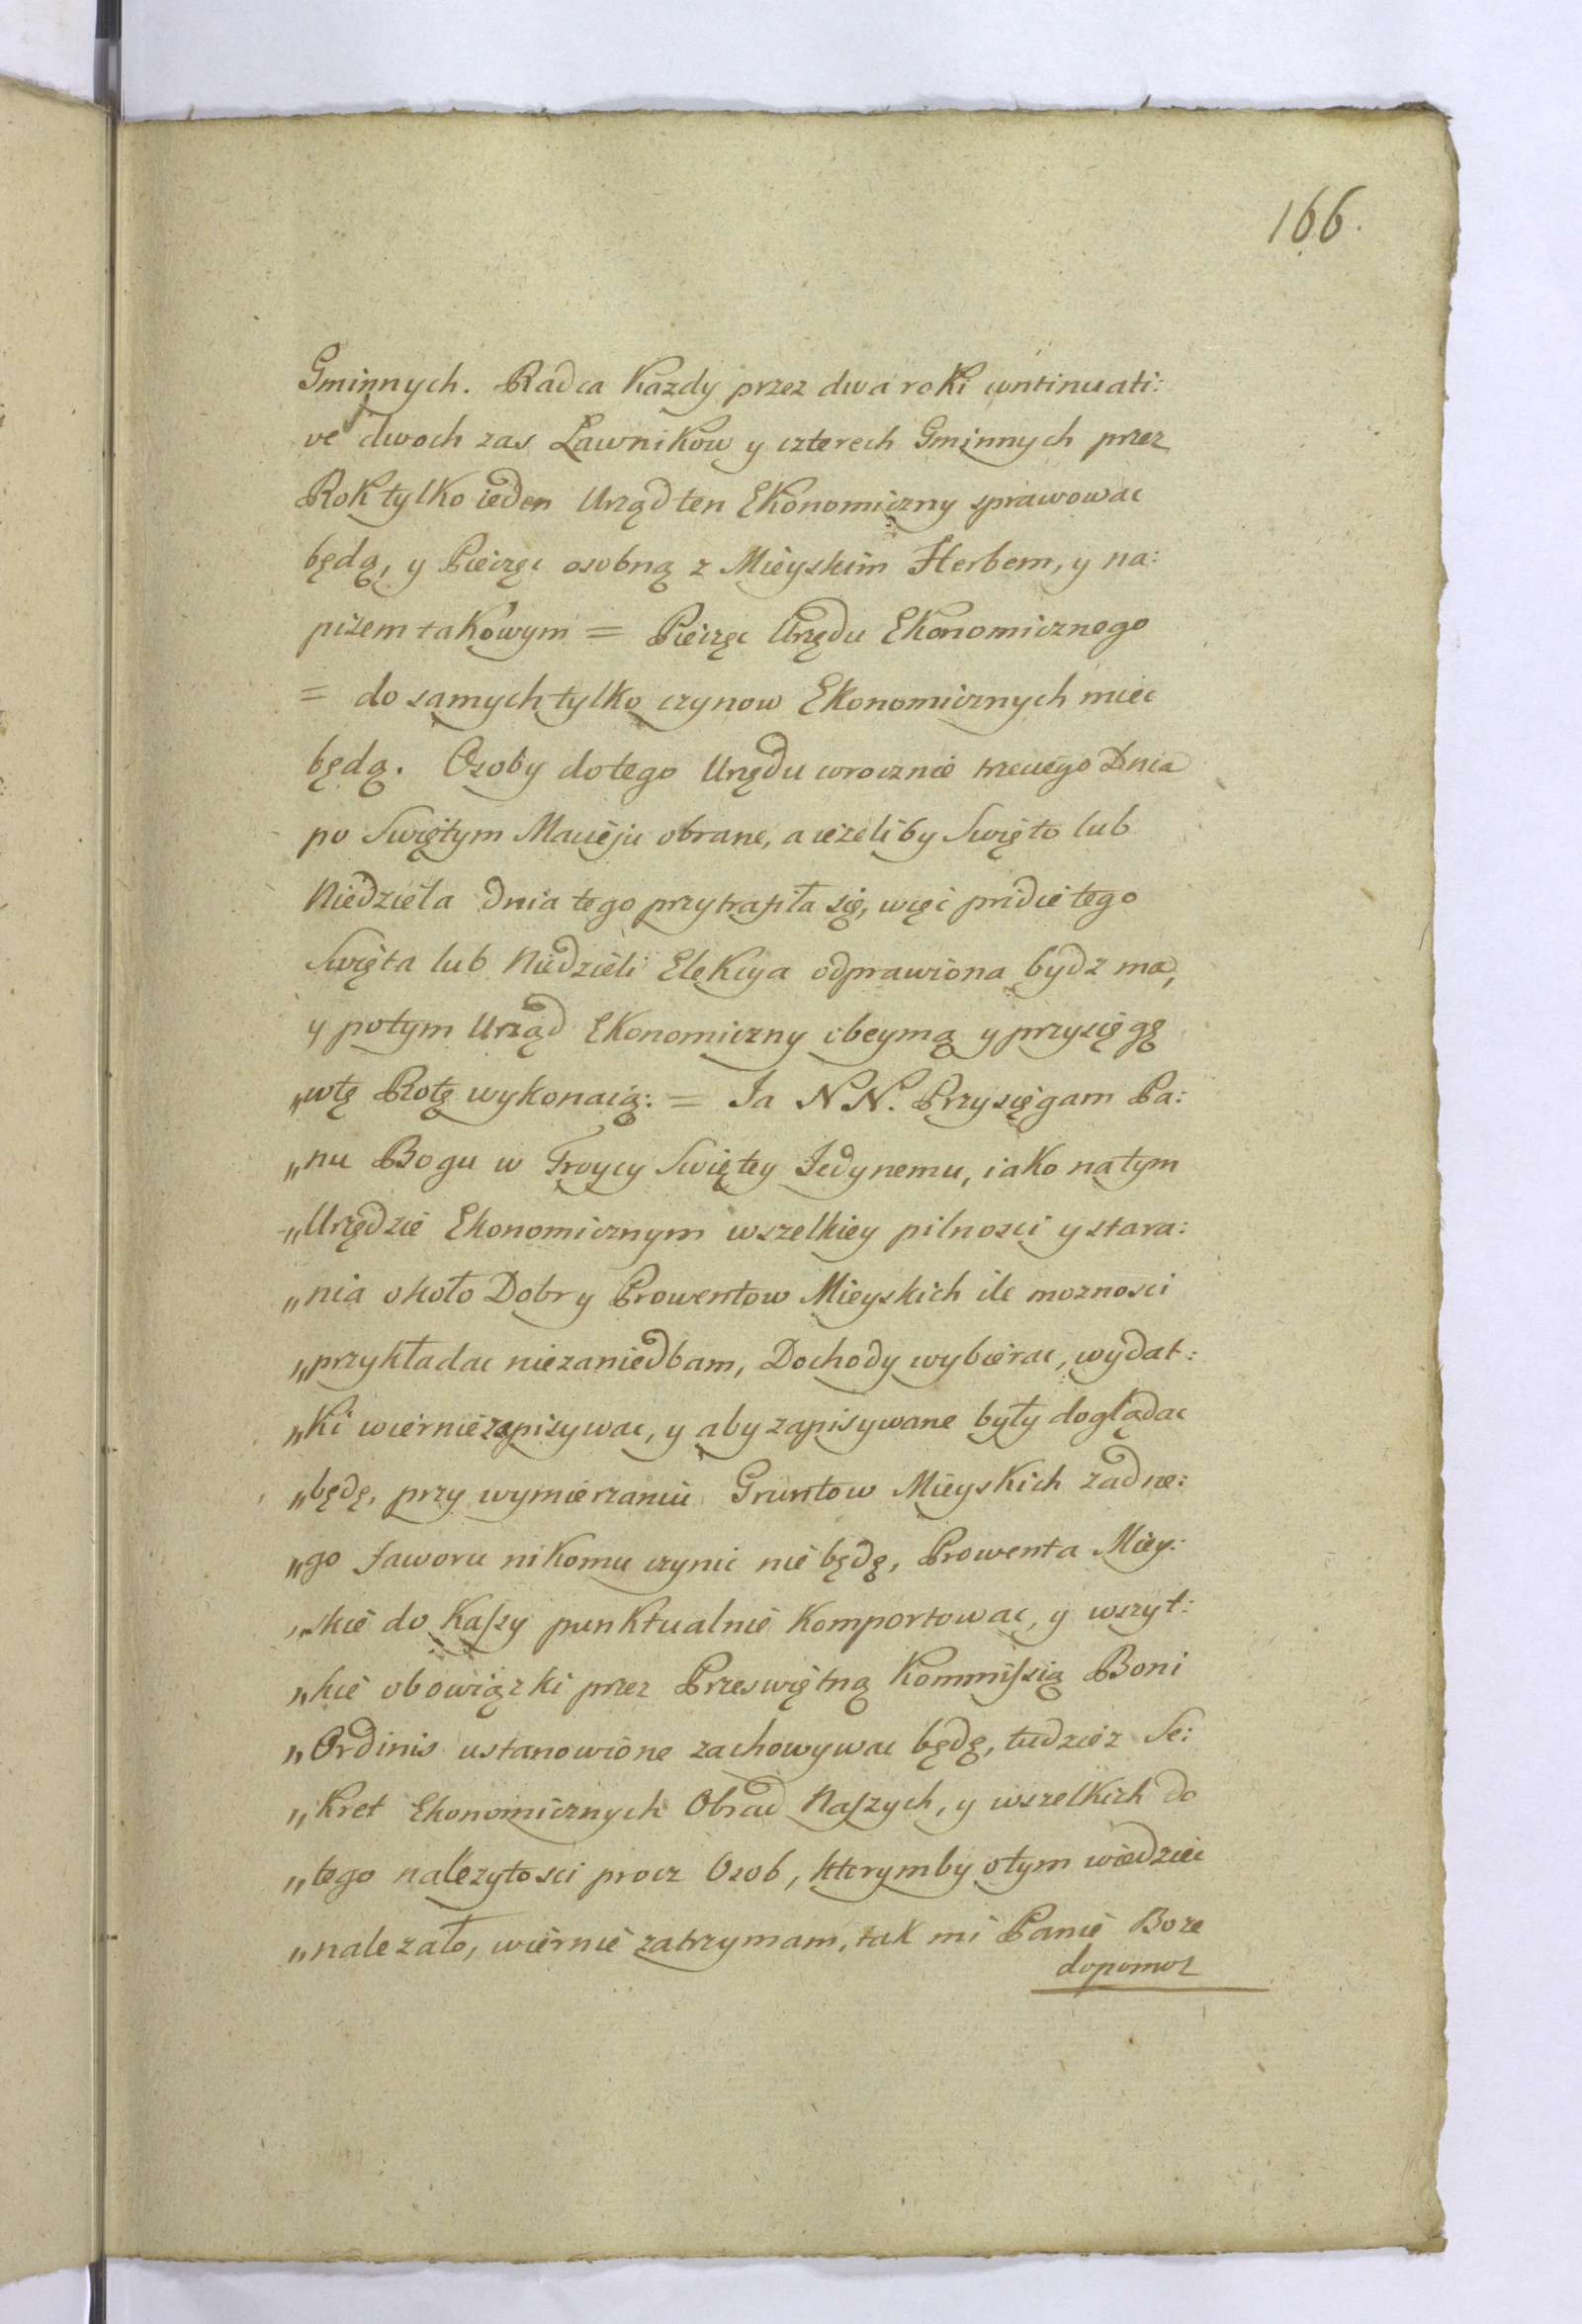 166.
Gminnych. Radca kazdy przez dwa roki continuati:
ve dwoch zas Ławnikow y czterech Gminnych przez
Rok tylko ieden Urząd ten Ekonomiczny sprawowac
będą, y Pieczęc osobną z Mieyskim Herbem, y na:
pisem takowym = Pieczęc Urzędu Ekonomicznego
= do samych tylko czynow Ekonomicznych miec
będą. Osoby do tego Urzędu corocznie trzeciego Dnia
po Swiętym Macieju obrane, a ieżeliby Swięto lub
Niedziela Dnia tego przytrafiła się, więc pridie tego
Swięta lub Niedzieli Elekcya odprawiona bydz ma,
y potym Urząd Ekonomiczny obeymą y przysięgę
„wtę Rotę wykonaią: = Ja NN. Przysięgam Pa:
„nu Bogu w Troycy Swiętey Jedynemu, iako na tym
„Urzędzie Ekonomicznym wszelkiey pilnosci y stara:
„nia około Dobr y Prowentow Mieyskich ile moznosci
„przykładac niezaniedbam, Dochody wybierac, wydat:
„ki wiernie zapisywac, y aby zapisywane były doglądac
„będę, przy wymierzaniu Gruntow Mieyskich zadne:
„go faworu nikomu czynic nie będę, Prowenta Miey:
„skie do Kaſsy punktualnie komportowac, y wszyt:
„kie obowiązki przez Przeswiętną Kommiſsią Boni
„Ordinis ustanowione zachowywac będę, tudziez Se:
„kret Ekonomicznych Obrad Naſzych, y wszelkich do
„tego nalezytosci procz Osob, ktorymby otym wiedziec
„nalezało, wiernie zatrzymam, tak mi Panie Boze
dopomoz